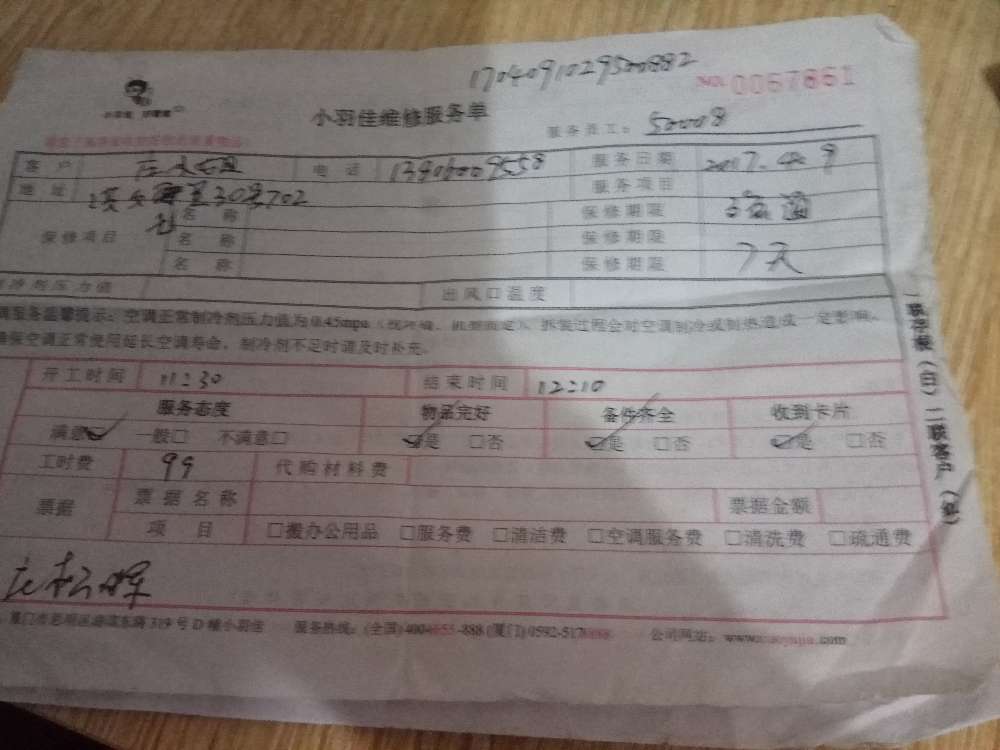 1704091029500882
No. 0067861
小羽佳维修服务单
服务员工: 50008
客户 电话 服务日期 2017.4.9
地址 30号702 服务项目
名称 保修期限 疏通
保修项目 名称 保修期限
名称 保修期限 7天
制冷剂压力值 出风口温度
调服务温馨提示:空调正常制冷剂压力值为0.45mpa 拆装过程会对空调制冷或制热造成一定影响。
确保空调正常使用延长空调寿命,制冷剂不足时请及时补充。
开工时间 11:30 结束时间 12:10
服务态度 物品完好 备件齐全 收到卡片
满意 一般□ 不满意□ 是 □否 是 □否 是 □否
工时费 99 代购材料费
票据 票据名称 票据金额
项目 □搬办公用品 □服务费 □清洁费 □空调服务费 □清洗费 □疏通费
庄松晖
厦门市思明区 319号D幢小羽佳 服务热线:(全国)400 -888(厦门)0592-517 公司网站:www.xiaoyujia.com
一联存根(白)二联客户(红)